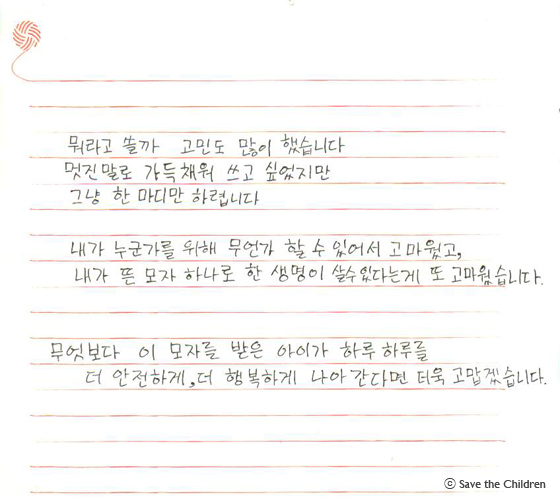 뭐라고 쓸까 고민도 많이 했습니다
멋진말로 가득채워 쓰고 싶었지만
그냥 한 마디만 하렵니다
내가 누군가를 위해 무언가 할 수 있어서 고마웠고,
내가 뜬 모자 하나로 한 생명이 살수있다는게 또 고마웠습니다.
무엇보다 이 모자를 받은 아이가 하루 하루를
더 안전하게, 더 행복하게 나아간다면 더욱 고맙겠습니다.
ⓒ Save the Children